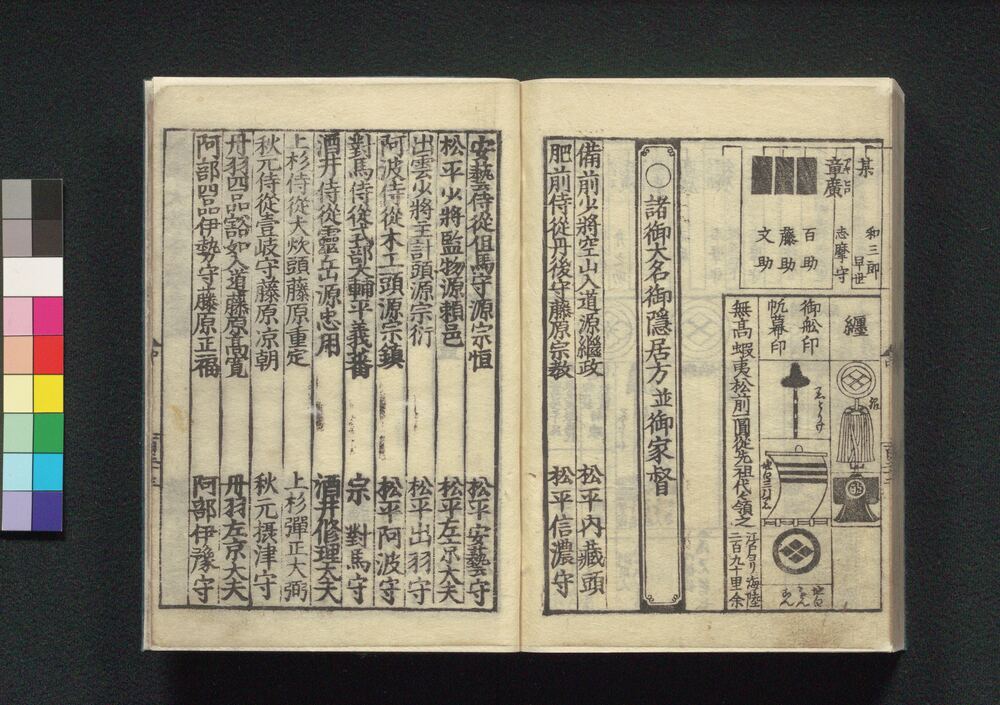 某
和三郎
早世
章廣
志摩守
百助
藤助
文助
纏
御舩印
帆幕印
無髙蝦夷松前一圓従先祖代々領之
江戸ヨリ海陸
二百九十里余
○諸御大名御隠居方並御家督
備前少將空山入道源繼政 松平内藏頭
肥前侍従丹後守藤原宗教 松平信濃守
安藝侍従但馬守源宗恒 松平安藝守
松平少將監物源頼邑 松平左京大夫
出雲少將主計頭源宗衍 松平出羽守
阿波侍従木工頭源宗鎮 松平阿波守
對馬侍従式部大輔平義蕃 宗對馬守
酒井侍従靈岳源忠用 酒井修理大夫
上杉侍従大炊頭藤原重定 上杉彈正大弼
秋元侍従壹岐守藤原凉朝 秋元摂津守
丹羽四品谿如入道藤原髙寛 丹羽左京大夫
阿部四品伊勢守藤原正福 阿部伊豫守